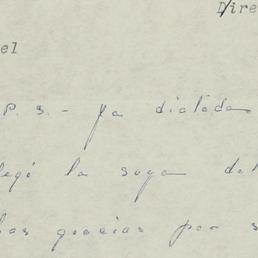 Dire
el
P. S. - Ya dictada
legó la suya del
has gracias por s